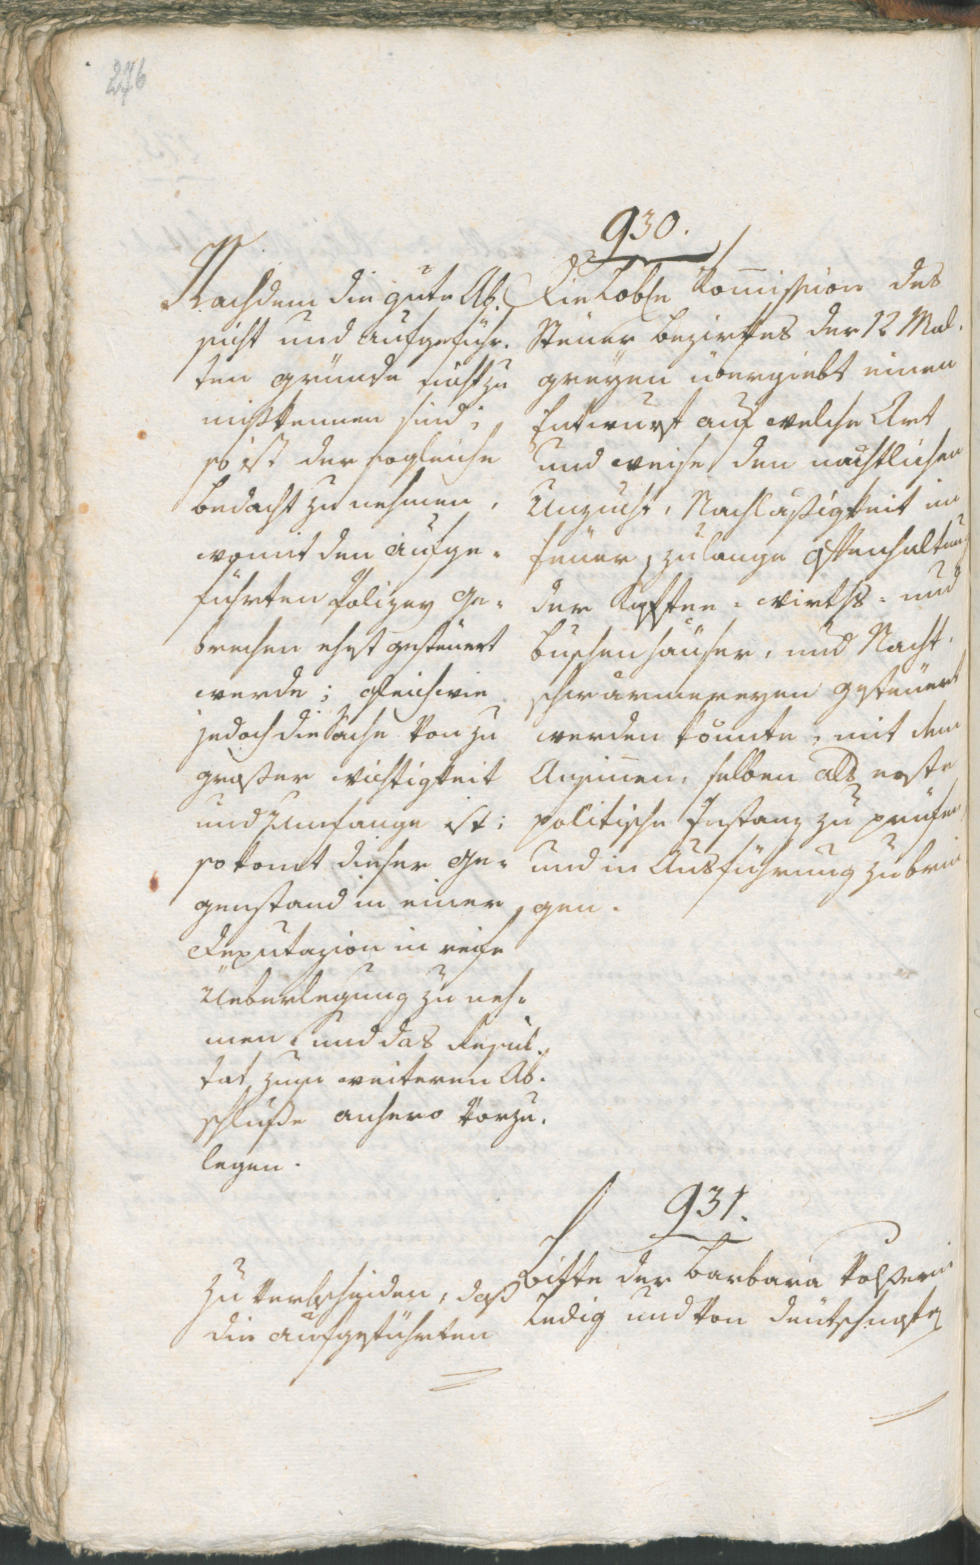 276
930.
Nachdem die gute Ab-
sicht und aufgeführ-
ten gründe nicht zu
mißkennen sind;
so ist der sogleiche
bedacht zu nehmen,
womit den aufge-
führten Polizey Ge-
brechen ehest gesteuert
werde; gleichwie
jedoch die Sache von zu
großer wichtigkeit
und Umfange ist;
so komt dieser Ge-
genstand in einer
Deputazion in reife
Ueberlegung zu neh-
men, und das Resul-
tat zum weiteren Ab-
schluße anhero vorzu-
legen.
Die Lobl. Kommission des
Steuer bezirkes der 12 Mal-
greyen übergiebt einen
Entwurf auf welche Art
und weise den nächtlichen
Unzucht, Nachläßigkeit im
feuer, zulange Offenhaltung
der Kaffee- wirths- und
buschenhäuser, und Nacht-
schwärmereyen gesteuert
werden könnte, mit dem
Ansinnen, selben als erste
politische Instanz zu prüfen,
und in Ausführung zu brin
gen.
931.
Zu verbscheiden, daß
die aufgeführten
Bitte der Barbara
Ledig und von deutschnofen